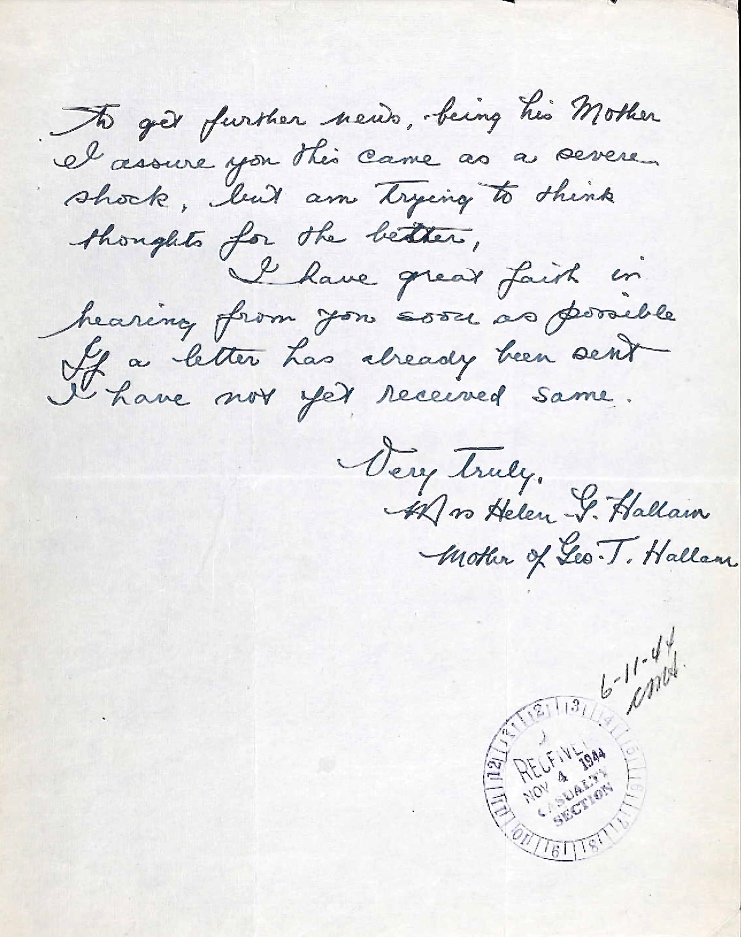 To get further news, being his Mother
I assure you this came as a severe
shock, but am trying to think
thoughts for the better,
I have great faith in
hearing from you soon as possible
If a letter has already been sent
I have not yet received same.
Very truly,
Mrs Helen G. Hallam
Mother of Geo. T. Hallam
6-11-44
RECEIVED
NOV 4 1944
CASUALTY
SECTION